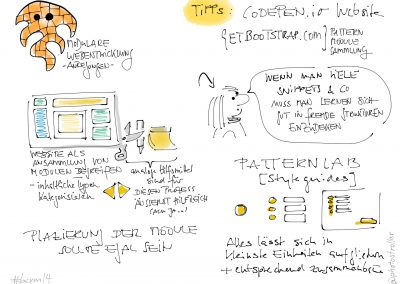 MODULARE
WEBENTWICKLUNG
WEBSITE ALS
ANSAMMLUNG VON
MODULEN BEGREIFEN
- inhaltliche Typen
kategorisieren
analoge Hilfsmittel
sind für
DIESEN PROZESS
ÄUSSERST HILFREICH
PLAZIERUNG DER MODULE
SOLLTE EGAL SEIN
#bacm14
TIPPS: CODEPEN.io Website
GETBOOTSTRAP.com
PATTERN
MODULE
SAMMLUNG
WENN MAN VIELE
SNIPPETS & CO
MUSS MAN LERNEN SICH
GUT IN FREMDE STRUKTUREN
EINZUDENKEN
PATTERNLAB
[Styleguides]
Alles lässt sich in
kleinste Einheiten aufgliedern
+ entsprechend